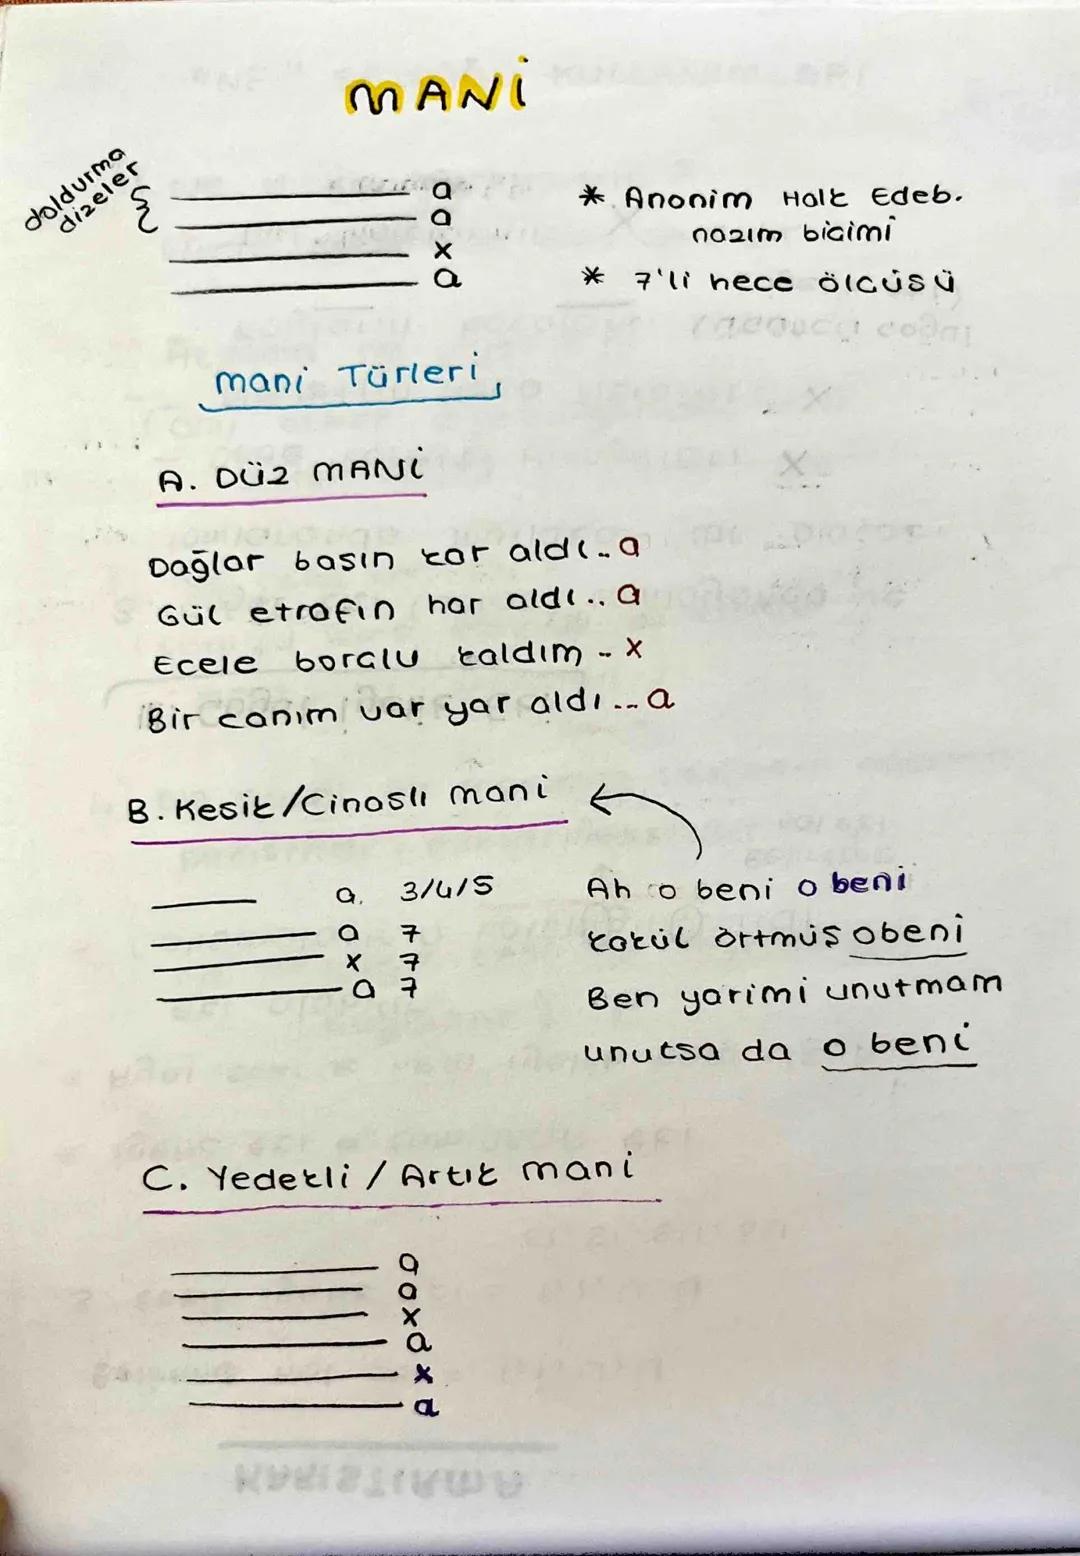 MANİ
doldurma
dizeler
a
a
x
a
* Anonim Halk Edeb.
nazım biçimi
* 7'li hece ölçüsü
mani Türleri
A. DÜZ MANİ
Dağlar başın kar aldı.. a
Gül etrafın har aldı.. a
Ecele borçlu kaldım .. x
Bir canım var yar aldı... a
B. Kesik/Cinaslı mani
a. 3/4/5
a 7
x 7
a 7
Ah o beni o beni
kakül örtmüş obeni
Ben yarimi unutmam
unutsa da o beni
C. Yedekli / Artık mani
a
a
x
a
x
a